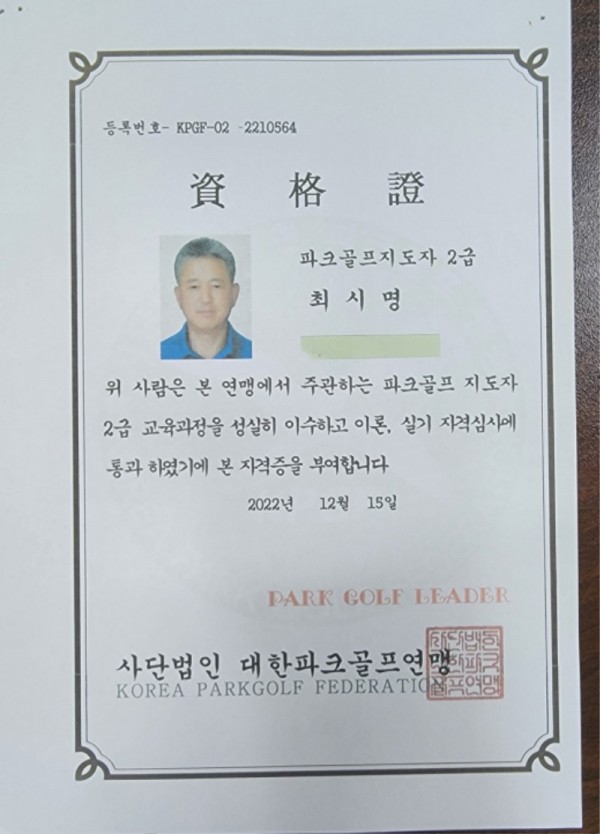 등록번호- KPGF-02 -2210564
資格證
파크골프지도자 2급
최시명
위 사람은 본 연맹에서 주관하는 파크골프 지도자
2급 교육과정을 성실히 이수하고 이론, 실기 자격심사에
통과 하였기에 본 자격증을 부여합니다
2022년 12월 15일
PARK GOLF LEADER
사단법인 대한파크골프연맹
KOREA PARKGOLF FEDERATION